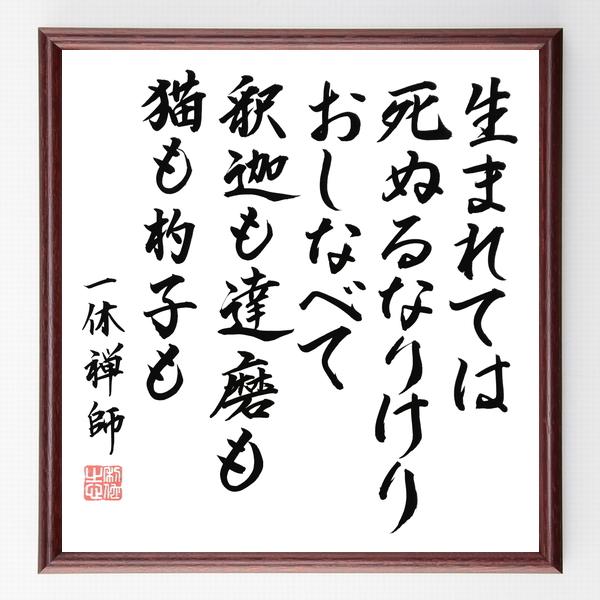 生まれては
死ぬるなりけり
おしなべて
釈迦も達磨も
猫も杓子も
一休禅師